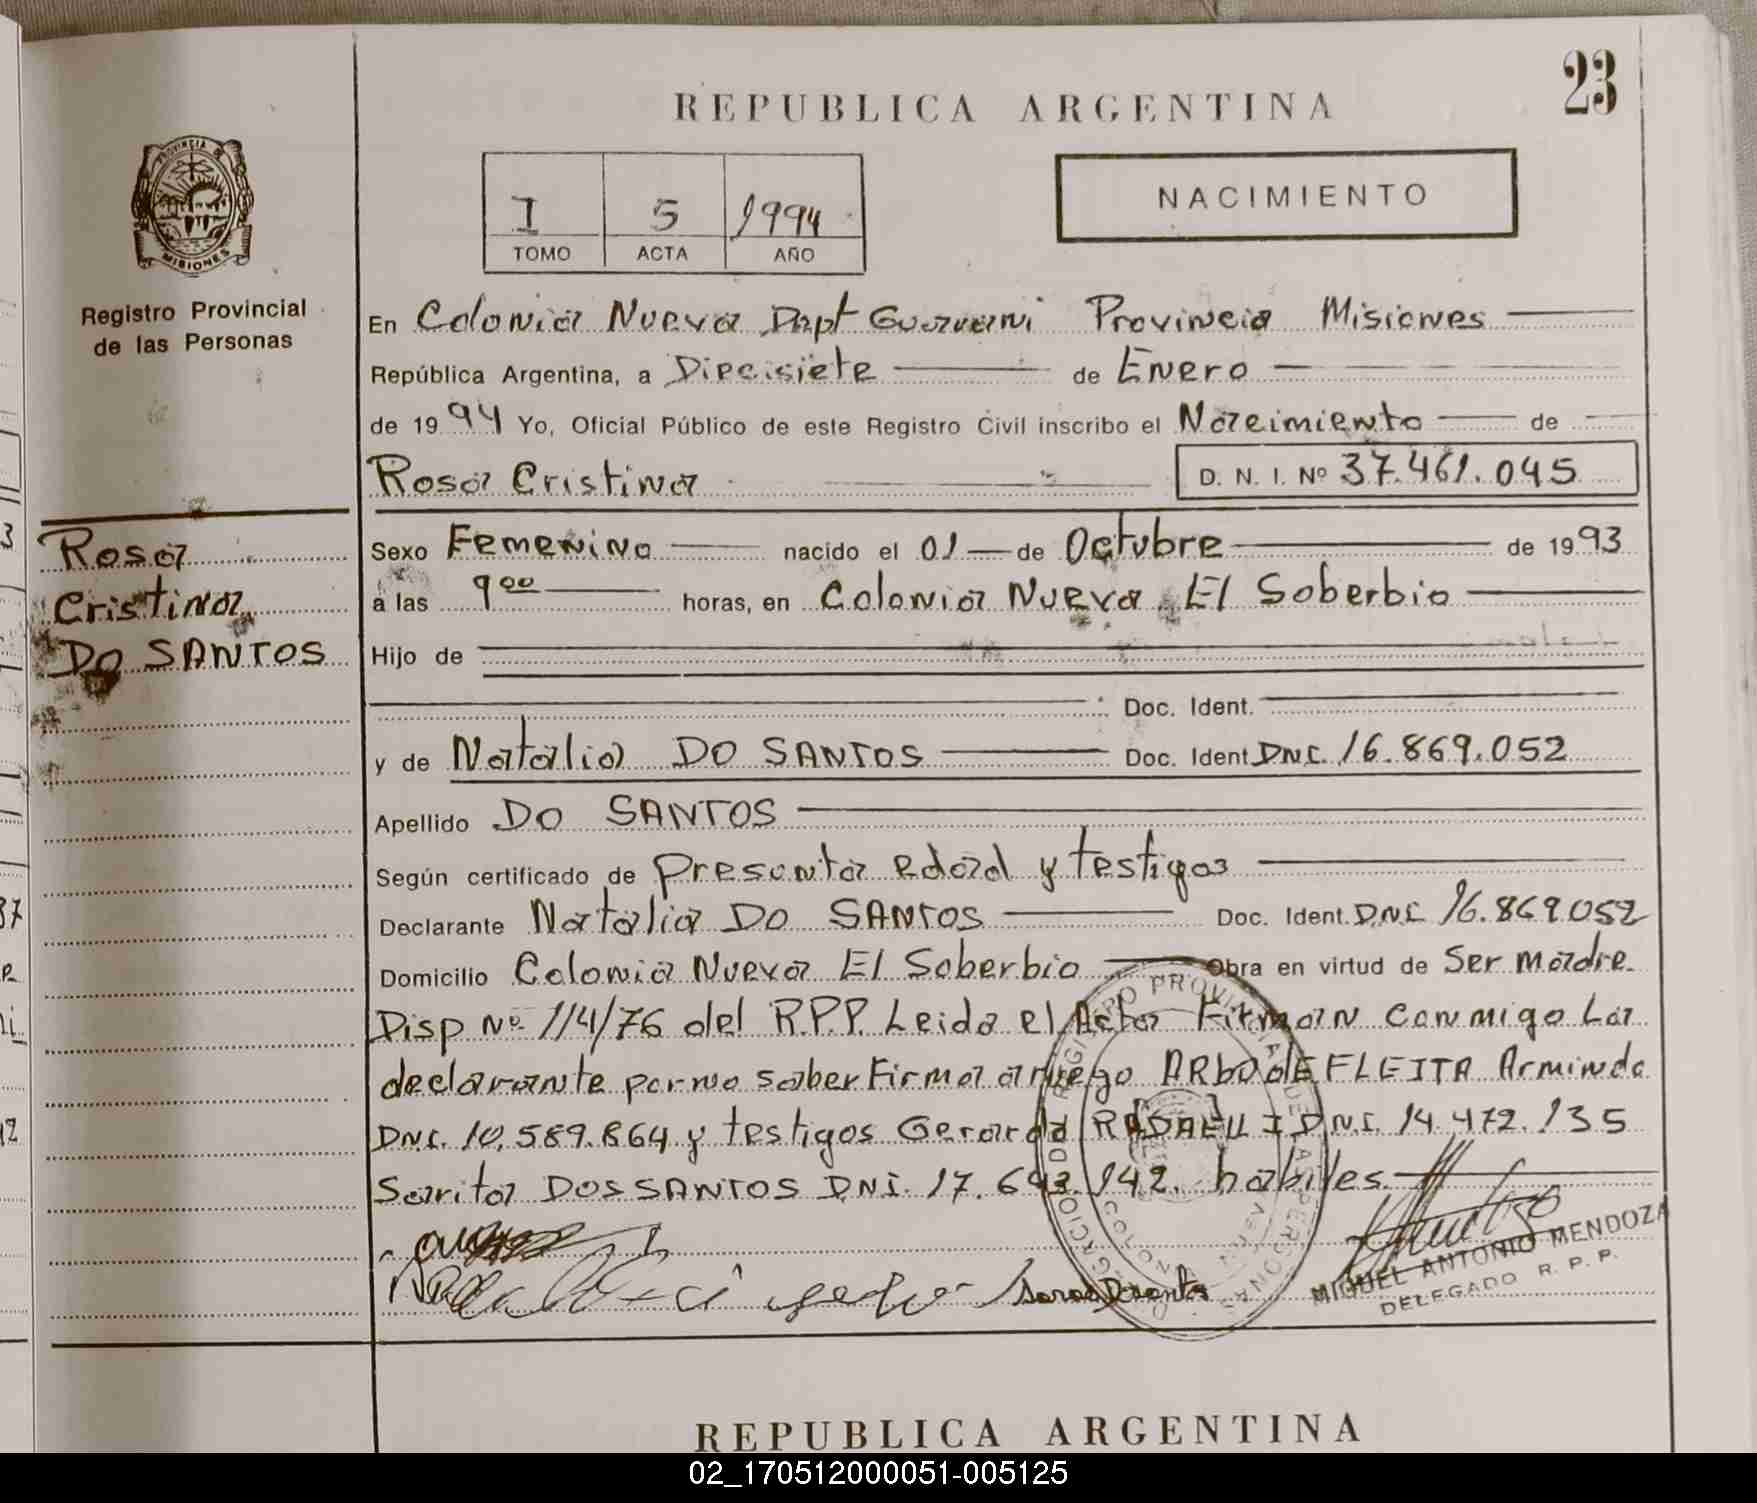 23
REPUBLICA ARGENTINA
I 5 1994
TOMO ACTA AÑO
NACIMIENTO
PROVINCIA DE
MISIONES
Registro Provincial
de las Personas
Rosa
Cristina
DO SANTOS
En Colonia Nueva Dapt Guarani Provincia Misiones
República Argentina, a Diecisiete de Enero
de 1994 Yo, Oficial Público de este Registro Civil inscribo el Nacimiento de
Rosa Cristina D. N. I. Nº 37.461.045
Sexo Femenino nacido el 01 de Octubre de 1993
a las 9 00 horas, en Colonia Nueva El Soberbio
Hijo de
Doc. Ident.
y de Natalia DO SANTOS Doc. Ident. DNI. 16.869.052
Apellido DO SANTOS
Según certificado de presunta edad y testigos
Declarante Natalia DO SANTOS Doc. Ident. DNI 16.869.052
Domicilio Colonia Nueva El Soberbio Obra en virtud de Ser madre.
Disp Nº 114/76 del R.P.P. Leida el Acta Firman conmigo La
declarante por no saber Firmar a ruego ARbO dE FLEITA Arminda
DNI. 10.589.864 y testigos Gerardo RADAELLI DNI. 14.472.135
Sarita DOS SANTOS DNI. 17.643.142. habiles.
MIGUEL ANTONIO MENDOZA
DELEGADO R. P. P.
REPUBLICA ARGENTINA
02_170512000051-005125